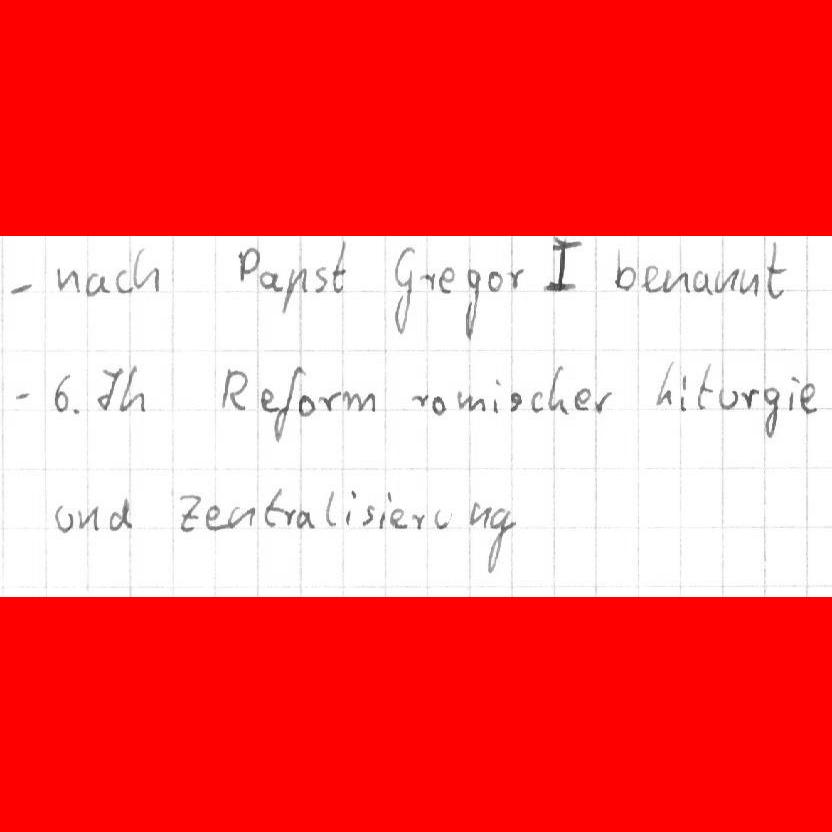 - nach Papst Gregor I benannt
- 6. Jh Reform romischer Liturgie
und Zentralisierung